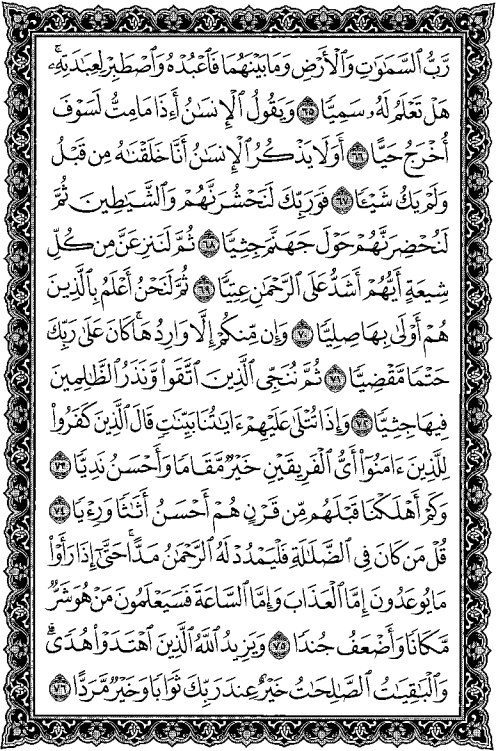 رَّبُّ السَّمَٰوَٰتِ وَالْأَرْضِ وَمَا بَيْنَهُمَا فَاعْبُدْهُ وَاصْطَبِرْ لِعِبَٰدَتِهِۦۚ
هَلْ تَعْلَمُ لَهُۥ سَمِيًّا ٦٥ وَيَقُولُ الْإِنسَٰنُ أَءِذَا مَا مِتُّ لَسَوْفَ
أُخْرَجُ حَيًّا ٦٦ أَوَلَا يَذْكُرُ الْإِنسَٰنُ أَنَّا خَلَقْنَٰهُ مِن قَبْلُ
وَلَمْ يَكُ شَيْـًٔا ٦٧ فَوَرَبِّكَ لَنَحْشُرَنَّهُمْ وَالشَّيَٰطِينَ ثُمَّ
لَنُحْضِرَنَّهُمْ حَوْلَ جَهَنَّمَ جِثِيًّا ٦٨ ثُمَّ لَنَنزِعَنَّ مِن كُلِّ
شِيعَةٍ أَيُّهُمْ أَشَدُّ عَلَى الرَّحْمَٰنِ عِتِيًّا ٦٩ ثُمَّ لَنَحْنُ أَعْلَمُ بِالَّذِينَ
هُمْ أَوْلَىٰ بِهَا صِلِيًّا ٧٠ وَإِن مِّنكُمْ إِلَّا وَارِدُهَاۚ كَانَ عَلَىٰ رَبِّكَ
حَتْمًا مَّقْضِيًّا ٧١ ثُمَّ نُنَجِّى الَّذِينَ اتَّقَوا۟ وَّنَذَرُ الظَّٰلِمِينَ
فِيهَا جِثِيًّا ٧٢ وَإِذَا تُتْلَىٰ عَلَيْهِمْ ءَايَٰتُنَا بَيِّنَٰتٍ قَالَ الَّذِينَ كَفَرُوا۟
لِلَّذِينَ ءَامَنُوٓا۟ أَىُّ الْفَرِيقَيْنِ خَيْرٌ مَّقَامًا وَأَحْسَنُ نَدِيًّا ٧٣
وَكَمْ أَهْلَكْنَا قَبْلَهُم مِّن قَرْنٍ هُمْ أَحْسَنُ أَثَٰثًا وَرِءْيًا ٧٤
قُلْ مَن كَانَ فِى الضَّلَٰلَةِ فَلْيَمْدُدْ لَهُ الرَّحْمَٰنُ مَدًّاۚ حَتَّىٰٓ إِذَا رَأَوْا۟
مَا يُوعَدُونَ إِمَّا الْعَذَابَ وَإِمَّا السَّاعَةَ فَسَيَعْلَمُونَ مَنْ هُوَ شَرٌّ
مَّكَانًا وَأَضْعَفُ جُندًا ٧٥ وَيَزِيدُ اللَّهُ الَّذِينَ اهْتَدَوْا۟ هُدًىۗ
وَالْبَٰقِيَٰتُ الصَّٰلِحَٰتُ خَيْرٌ عِندَ رَبِّكَ ثَوَابًا وَخَيْرٌ مَّرَدًّا ٧٦